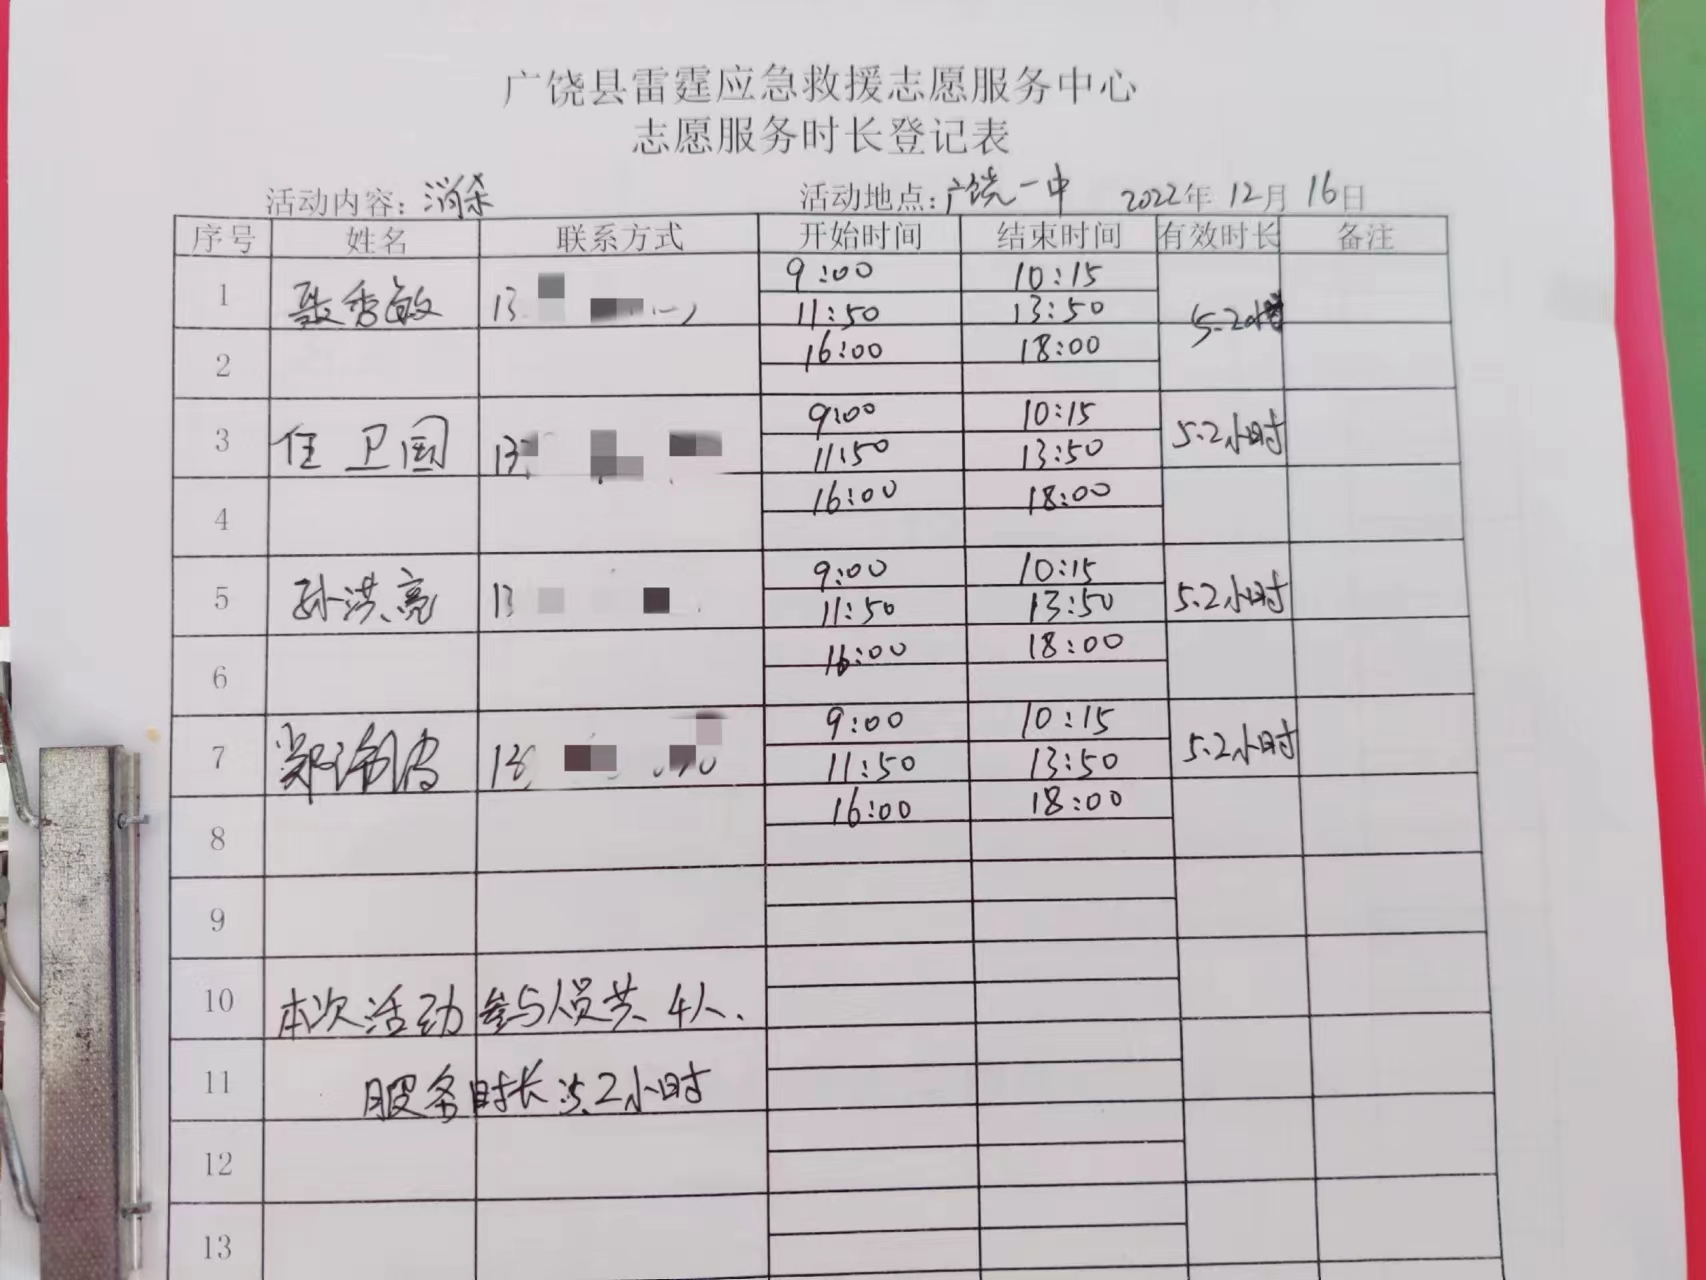 广饶县雷霆应急救援志愿服务中心
志愿服务时长登记表
活动内容：消杀 活动地点：广饶一中 2022年12月16日
序号 姓名 联系方式 开始时间 结束时间 有效时长 备注
1 聂秀敏 13 9:00 10:15 5.2小时
11:50 13:50
2 16:00 18:00
3 任卫国 13 9:00 10:15 5.2小时
11:50 13:50
4 16:00 18:00
5 孙洪亮 13 9:00 10:15 5.2小时
11:50 13:50
6 16:00 18:00
7 郑 13 9:00 10:15 5.2小时
11:50 13:50
8 16:00 18:00
9
10 本次活动参与人员共4人.
11 服务时长5.2小时
12
13